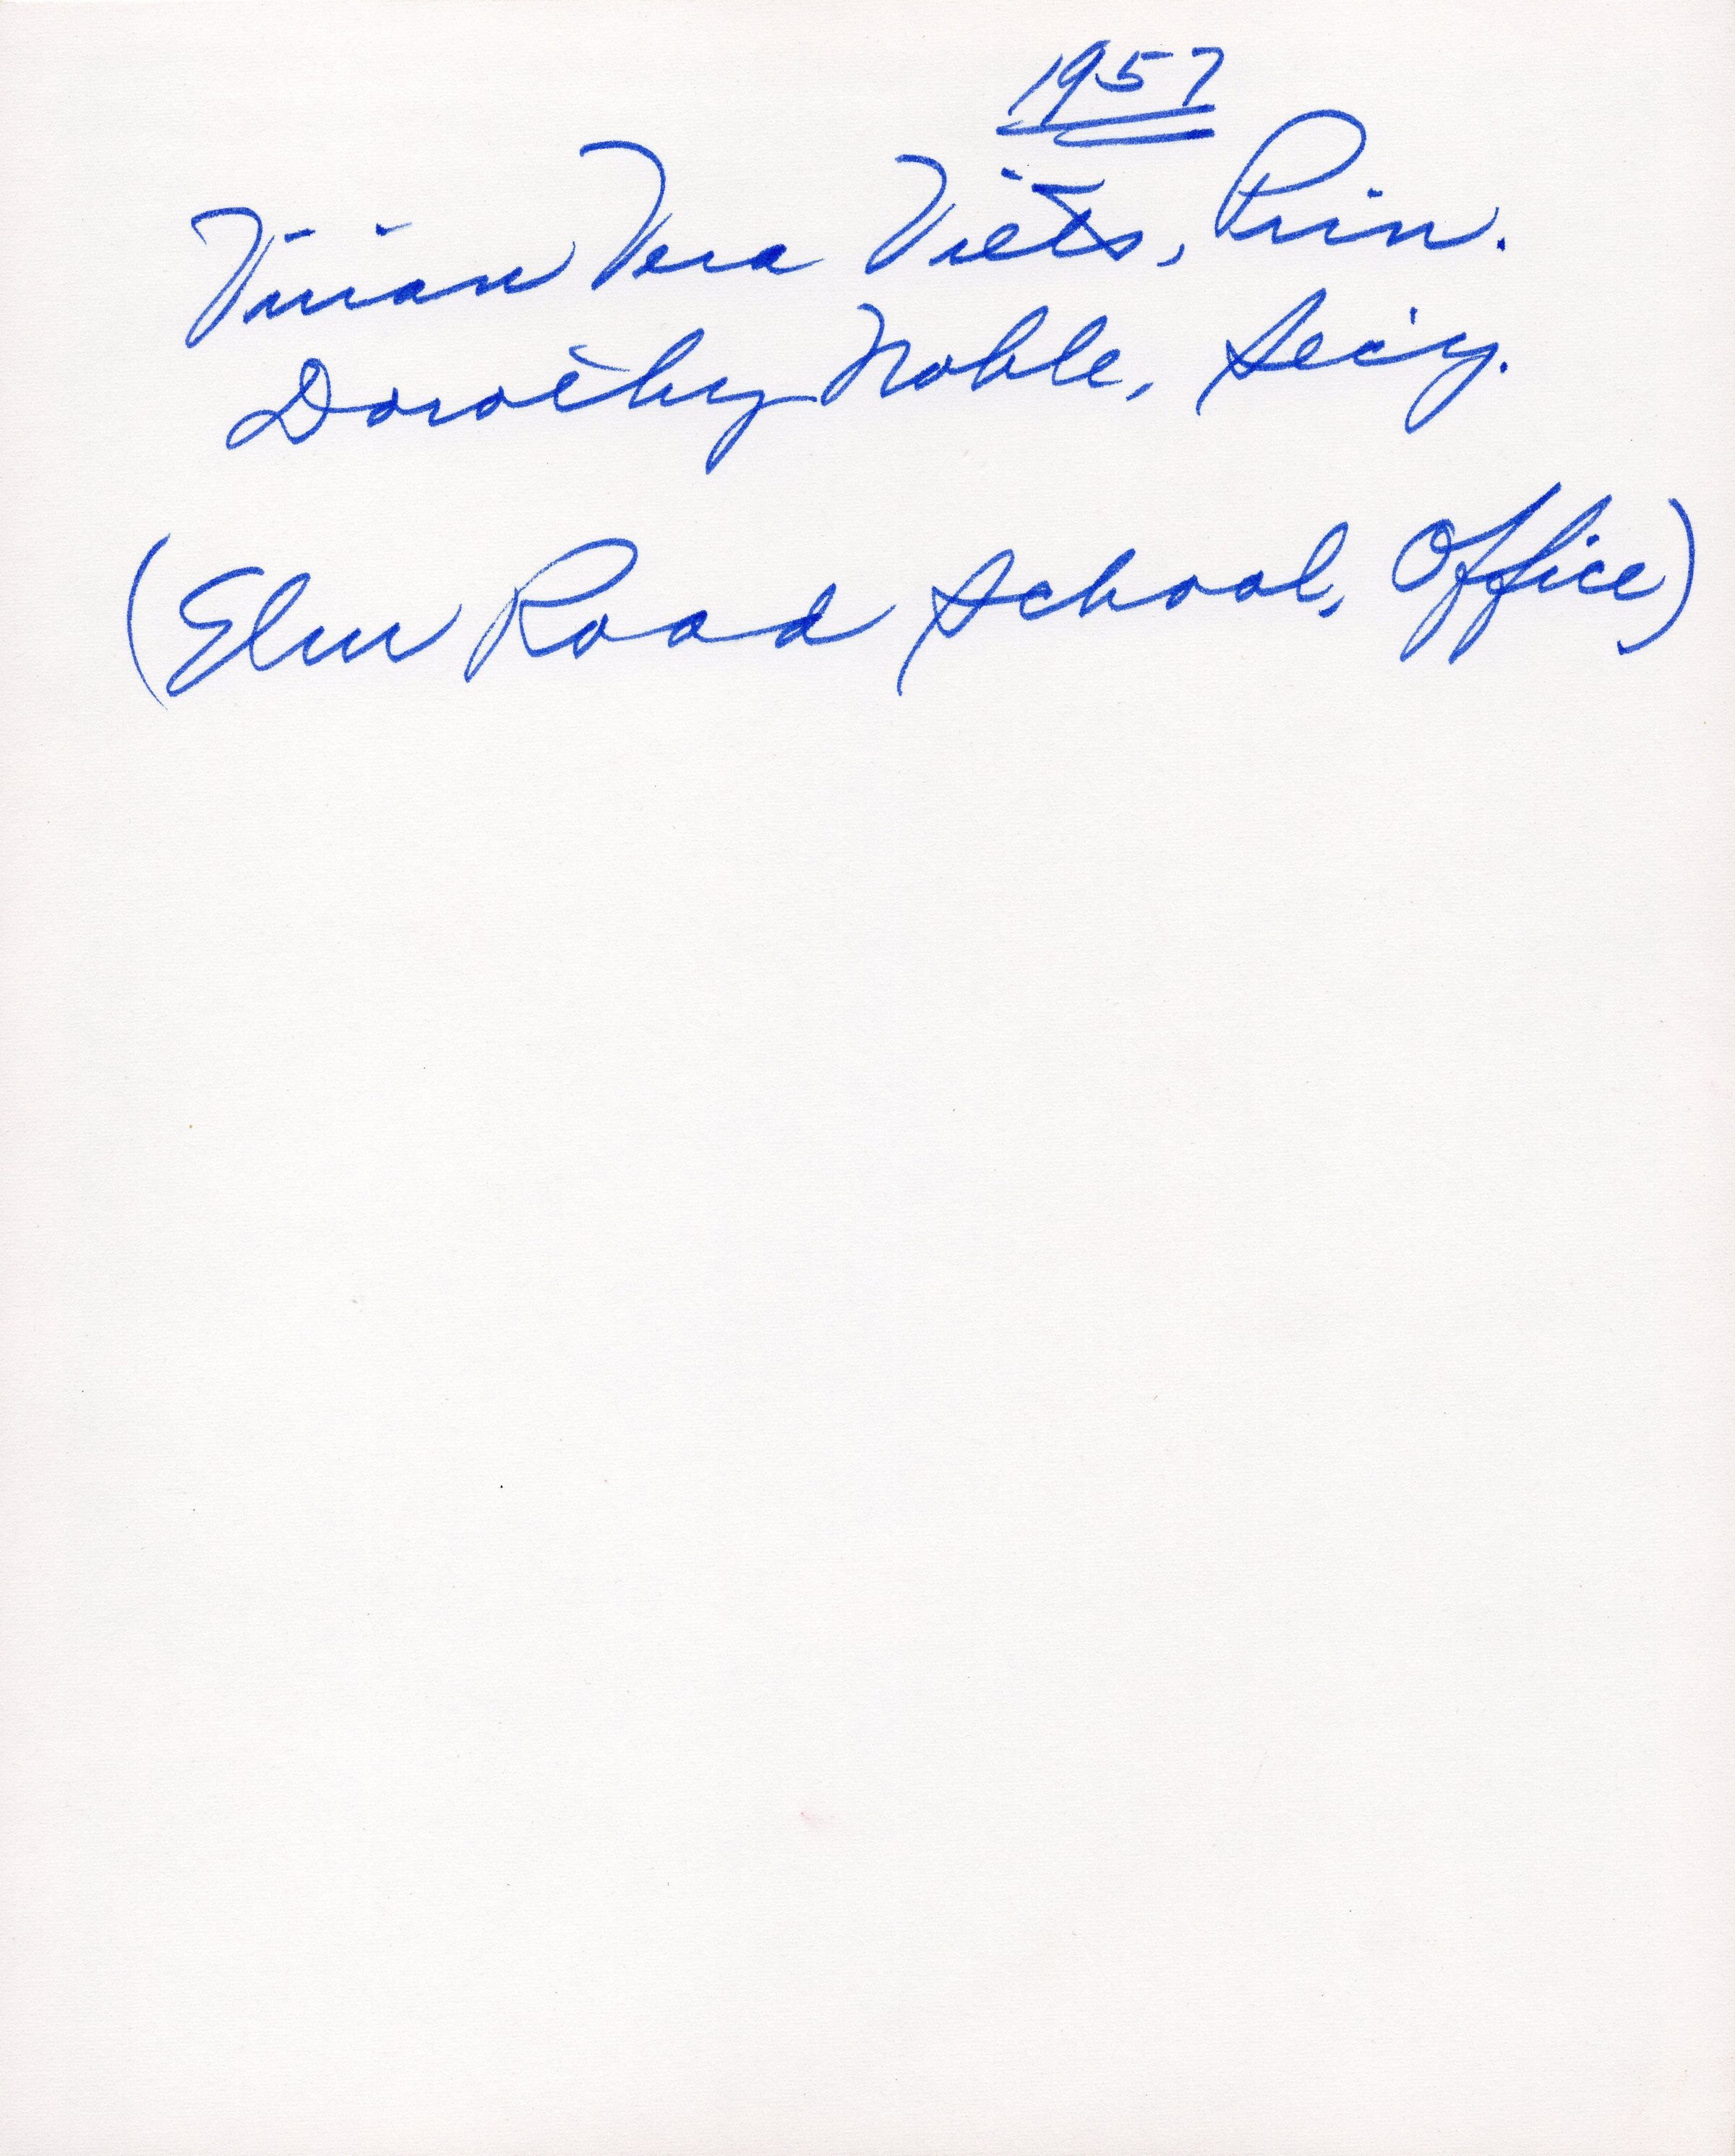 1957
Vivian Vera Viets, Prin.
Dorothy Noble, Sec'y.
(Elm Road School, Office)